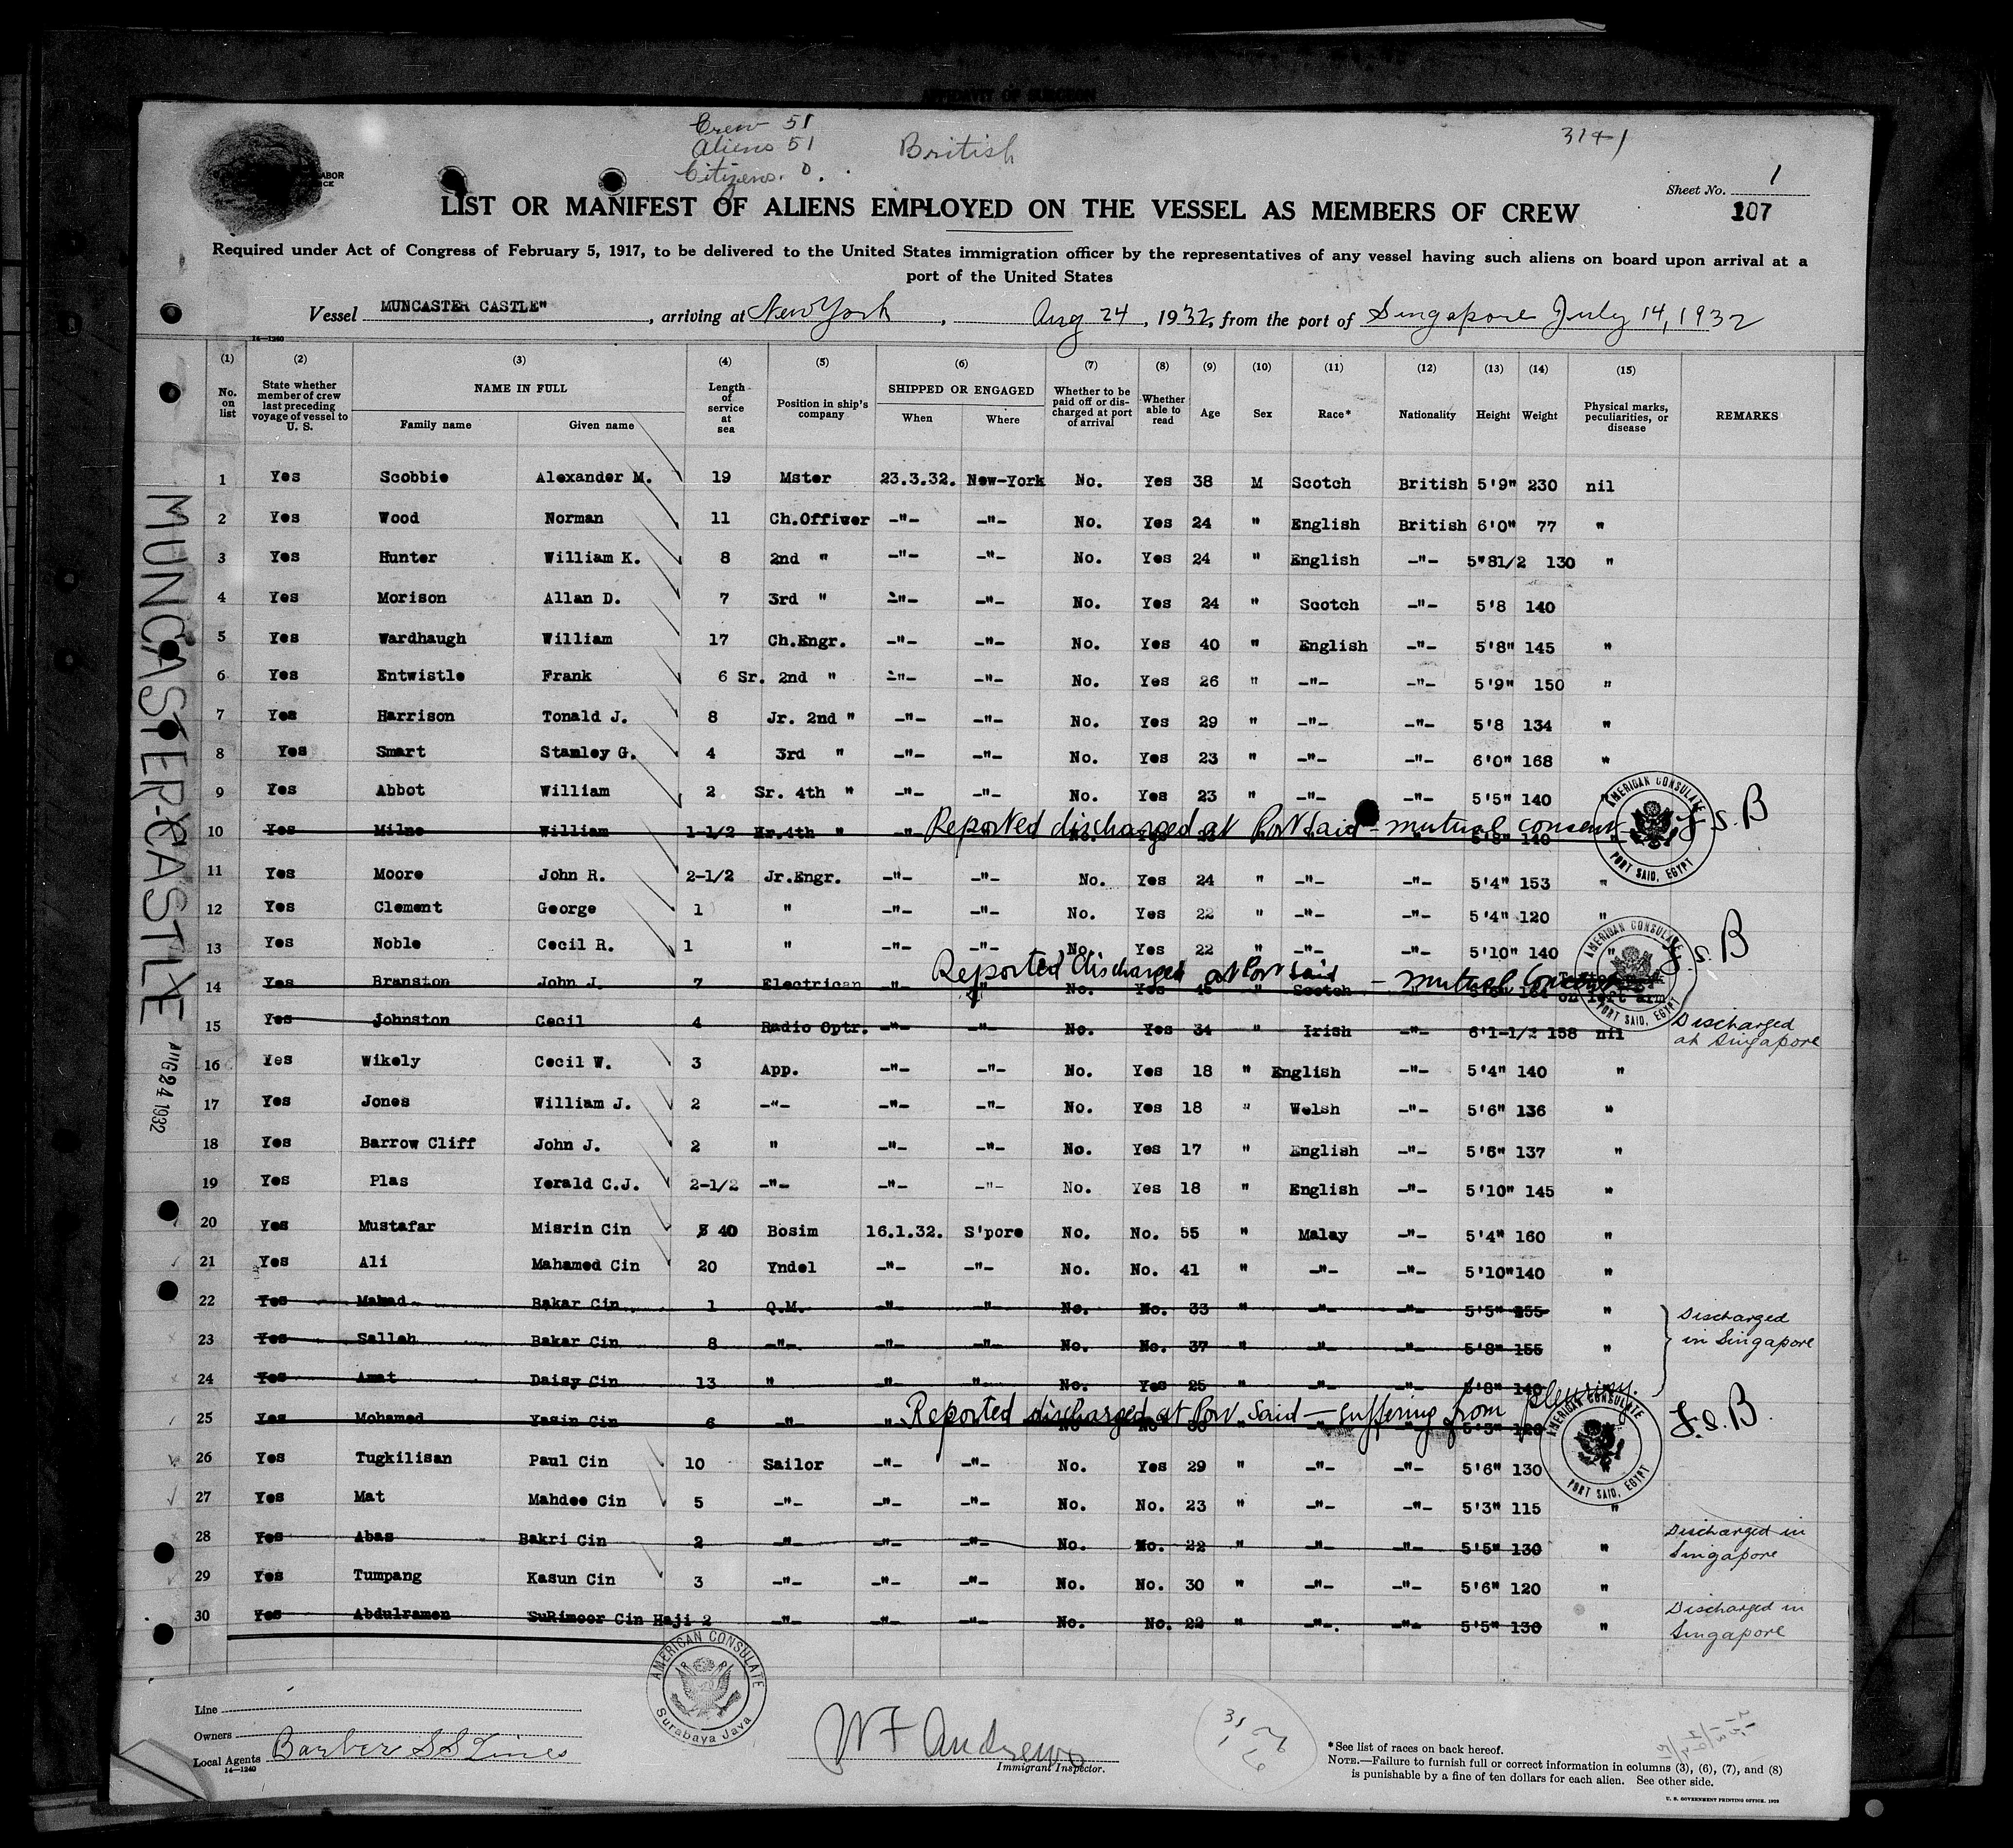 AFFIDAVIT OF SURGEON
Crew 51
Aliens 51
Citizens. 0.
British
3141
ABOR
ICE
Sheet No. 1
107
LIST OR MANIFEST OF ALIENS EMPLOYED ON THE VESSEL AS MEMBERS OF CREW
Required under Act of Congress of February 5, 1917, to be delivered to the United States immigration officer by the representatives of any vessel having such aliens on board upon arrival at a
port of the United States
Vessel MUNCASTER CASTLE", arriving at New York, Aug 24, 1932, from the port of Singapore July 14, 1932
14—1240
(1) (2) (3) (4) (5) (6) (7) (8) (9) (10) (11) (12) (13) (14) (15)
No. on list State whether member of crew last preceding voyage of vessel to U. S. NAME IN FULL Family name Given name Length of service at sea Position in ship's company SHIPPED OR ENGAGED When Where Whether to be paid off or discharged at port of arrival Whether able to read Age Sex Race* Nationality Height Weight Physical marks, peculiarities, or disease REMARKS
1 Yes Scobbie Alexander M. 19 Mster 23.3.32. New-York No. Yes 38 M Scotch British 5'9" 230 nil
2 Yes Wood Norman 11 Ch.Offiwer -"- -"- No. Yes 24 " English British 6'0" 77 "
3 Yes Hunter William K. 8 2nd " -"- -"- No. Yes 24 " English -"- 5"81/2 130 "
4 Yes Morison Allan D. 7 3rd " -"- -"- No. Yes 24 " Scotch -"- 5'8 140
5 Yes Wardhaugh William 17 Ch.Engr. -"- -"- No. Yes 40 " English -"- 5'8" 145 "
6 Yes Entwistle Frank 6 Sr. 2nd " -"- -"- No. Yes 26 " -"- -"- 5'9" 150 "
7 Yes Harrison Tonald J. 8 Jr. 2nd " -"- -"- No. Yes 29 " -"- -"- 5'8 134 "
8 Yes Smart Stanley G. 4 3rd " -"- -"- No. Yes 23 " -"- -"- 6'0" 168 "
9 Yes Abbot William 2 Sr. 4th " -"- -"- No. Yes 23 " -"- -"- 5'5" 140 "
10 Yes Milne William 1-1/2 4th " Reported discharged at Port Said - mutual consent 5'8" 140 J.S.B
AMERICAN CONSULATE PORT SAID, EGYPT
11 Yes Moore John R. 2-1/2 Jr.Engr. -"- -"- No. Yes 24 " -"- -"- 5'4" 153 "
12 Yes Clement George 1 " -"- -"- No. Yes 22 " -"- -"- 5'4" 120 "
13 Yes Noble Cecil R. 1 " -"- -"- No. Yes 22 " -"- -"- 5'10" 140 "
Reported discharged at Port Said - mutual consent J.S.B
AMERICAN CONSULATE PORT SAID, EGYPT
14 Yes Branston John J. 7 Electrican -"- " No. Yes 45 " Scotch " on left arm
15 Yes Johnston Cecil 4 Radio Optr. -"- -"- No. Yes 34 " Irish -"- 6'1-1/2 158 nil Discharged at Singapore
16 Yes Wikely Cecil W. 3 App. -"- -"- No. Yes 18 " English -"- 5'4" 140 "
17 Yes Jones William J. 2 -"- -"- -"- No. Yes 18 " Welsh -"- 5'6" 136 "
18 Yes Barrow Cliff John J. 2 " -"- -"- No. Yes 17 " English -"- 5'6" 137 "
19 Yes Plas Yerald C.J. 2-1/2 -"- -"- -"- No. Yes 18 " English -"- 5'10" 145 "
20 Yes Mustafar Misrin Cin 40 Bosim 16.1.32. S'pore No. No. 55 " Malay -"- 5'4" 160 "
21 Yes Ali Mahamed Cin 20 Yndel -"- -"- No. No. 41 " -"- -"- 5'10" 140 "
22 Yes Mahad Bakar Cin 1 Q.M. -"- -"- No. No. 33 " -"- -"- 5'5" 255 " Discharged
23 Yes Salleh Bakar Cin 8 -"- -"- -"- No. No. 37 " -"- -"- 5'8" 155 " in Singapore
24 Yes Amat Daisy Cin 13 " -"- " No. Yes 25 " -"- -"- 5'8" 140
25 Yes Mohamed Yasin Cin 6 -"- Reported discharged at Port Said - suffering from pleurisy. 5'5" 120 J.S.B.
AMERICAN CONSULATE PORT SAID, EGYPT
26 Yes Tugkilisan Paul Cin 10 Sailor -"- -"- No. Yes 29 " -"- -"- 5'6" 130
27 Yes Mat Mahdee Cin 5 -"- -"- -"- No. No. 23 " -"- -"- 5'3" 115 "
28 Yes Abas Bakri Cin 2 -"- -"- -"- No. No. 22 " -"- -"- 5'5" 130 " Discharged in Singapore
29 Yes Tumpang Kasun Cin 3 -"- -"- -"- No. No. 30 " -"- -"- 5'6" 120 "
30 Yes Abdulramen SuRimoor Cin Haji 2 -"- -"- -"- No. No. 22 " -"-. -"- 5'5" 130 " Discharged in Singapore
MUNCASTER CASTLE
AUG 24 1932
AMERICAN CONSULATE Surabaya Java
Line
Owners
Local Agents Barber SS Lines
14—1240
W F Andrews
Immigrant Inspector.
*See list of races on back hereof.
NOTE.—Failure to furnish full or correct information in columns (3), (6), (7), and (8)
is punishable by a fine of ten dollars for each alien. See other side.
U. S. GOVERNMENT PRINTING OFFICE. 1929